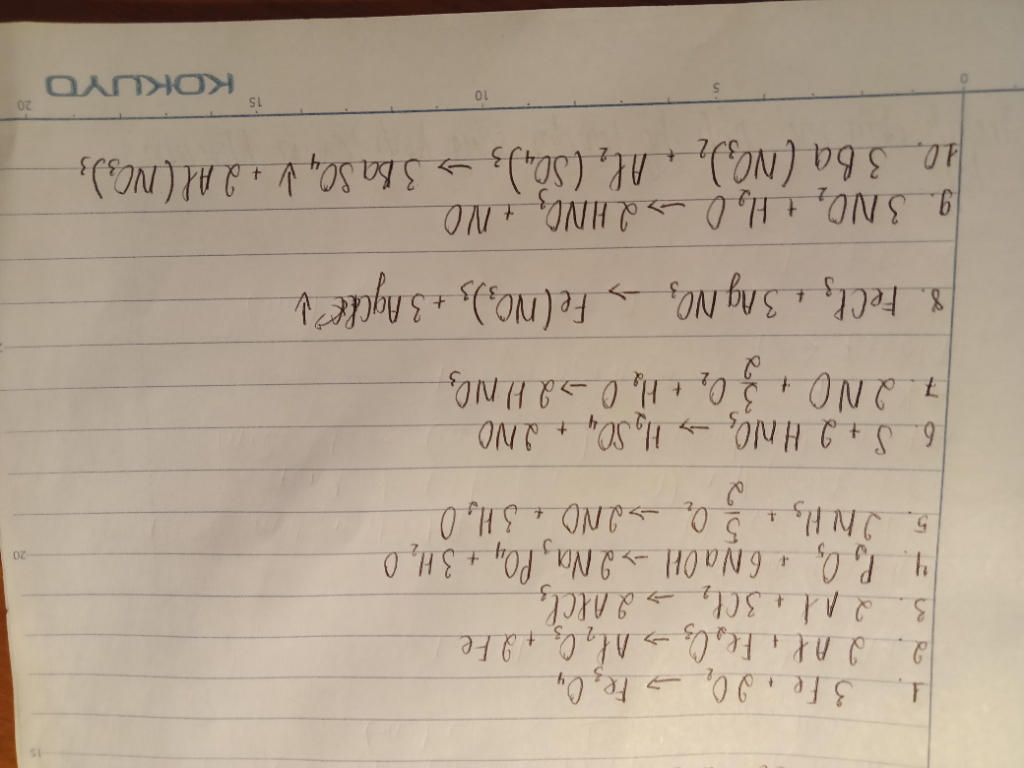 15
1. 3 Fe + 2O₂ → Fe₃O₄
2. 2 Al + Fe₂O₃ → Al₂O₃ + 2 Fe
3. 2 Al + 3Cl₂ → 2 AlCl₃
4. P₂O₅ + 6NaOH → 2Na₃PO₄ + 3H₂O
20
5. 2NH₃ + 5/2 O₂ → 2NO + 3H₂O
6. S + 2HNO₃ → H₂SO₄ + 2NO
7. 2NO + 3/2 O₂ + H₂O → 2HNO₃
8. FeCl₃ + 3AgNO₃ → Fe(NO₃)₃ + 3AgCl↓
9. 3NO₂ + H₂O → 2HNO₃ + NO
10. 3Ba(NO₃)₂ + Al₂(SO₄)₃ → 3BaSO₄↓ + 2Al(NO₃)₃
0 5 10 15 20
KOKUYO